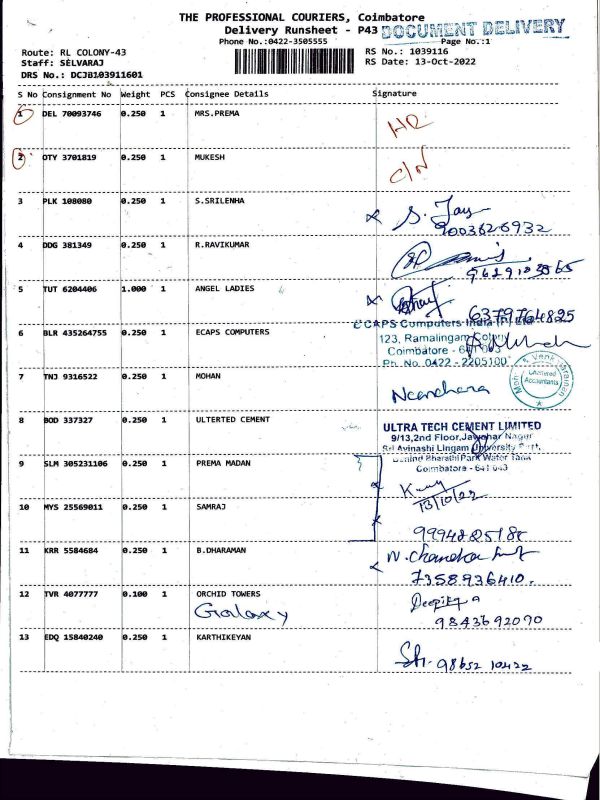 THE PROFESSIONAL COURIERS, Coimbatore
Delivery Runsheet - P43 DOCUMENT DELIVERY
Phone No.:0422-3505555 Page No.:1
Route: RL COLONY-43 RS No.: 1039116
Staff: SELVARAJ RS Date: 13-Oct-2022
DRS No.: DCJB103911601
S No Consignment No Weight PCS Consignee Details Signature
1 DEL 70093746 0.250 1 MRS.PREMA
2 OTY 3701819 0.250 1 MUKESH C/N
3 PLK 108080 0.250 1 S.SRILENHA S. Jay
9003626932
4 DDG 381349 0.250 1 R.RAVIKUMAR
5 TUT 6204406 1.000 1 ANGEL LADIES
6379764825
ECAPS Computers India (P) Ltd
6 BLR 435264755 0.250 1 ECAPS COMPUTERS 123, Ramalingam Colony
Coimbatore - 641 043
Ph. No. 0422 - 2205100
7 TNJ 9316522 0.250 1 MOHAN Chartered Accountants
8 BOD 337327 0.250 1 ULTERTED CEMENT ULTRA TECH CEMENT LIMITED
9/13,2nd Floor,Jawahar Nagar
Sri Avinashi Lingam University Post,
Behind Bharathi Park Water Tank
Coimbatore - 641 043
9 SLM 305231106 0.250 1 PREMA MADAN
13/10/22
10 MYS 25569011 0.250 1 SAMRAJ
11 KRR 5584684 0.250 1 B.DHARAMAN
7358936410.
12 TVR 4077777 0.100 1 ORCHID TOWERS Deepika
Galaxy 9843692090
13 EDQ 15840240 0.250 1 KARTHIKEYAN
98652 10422